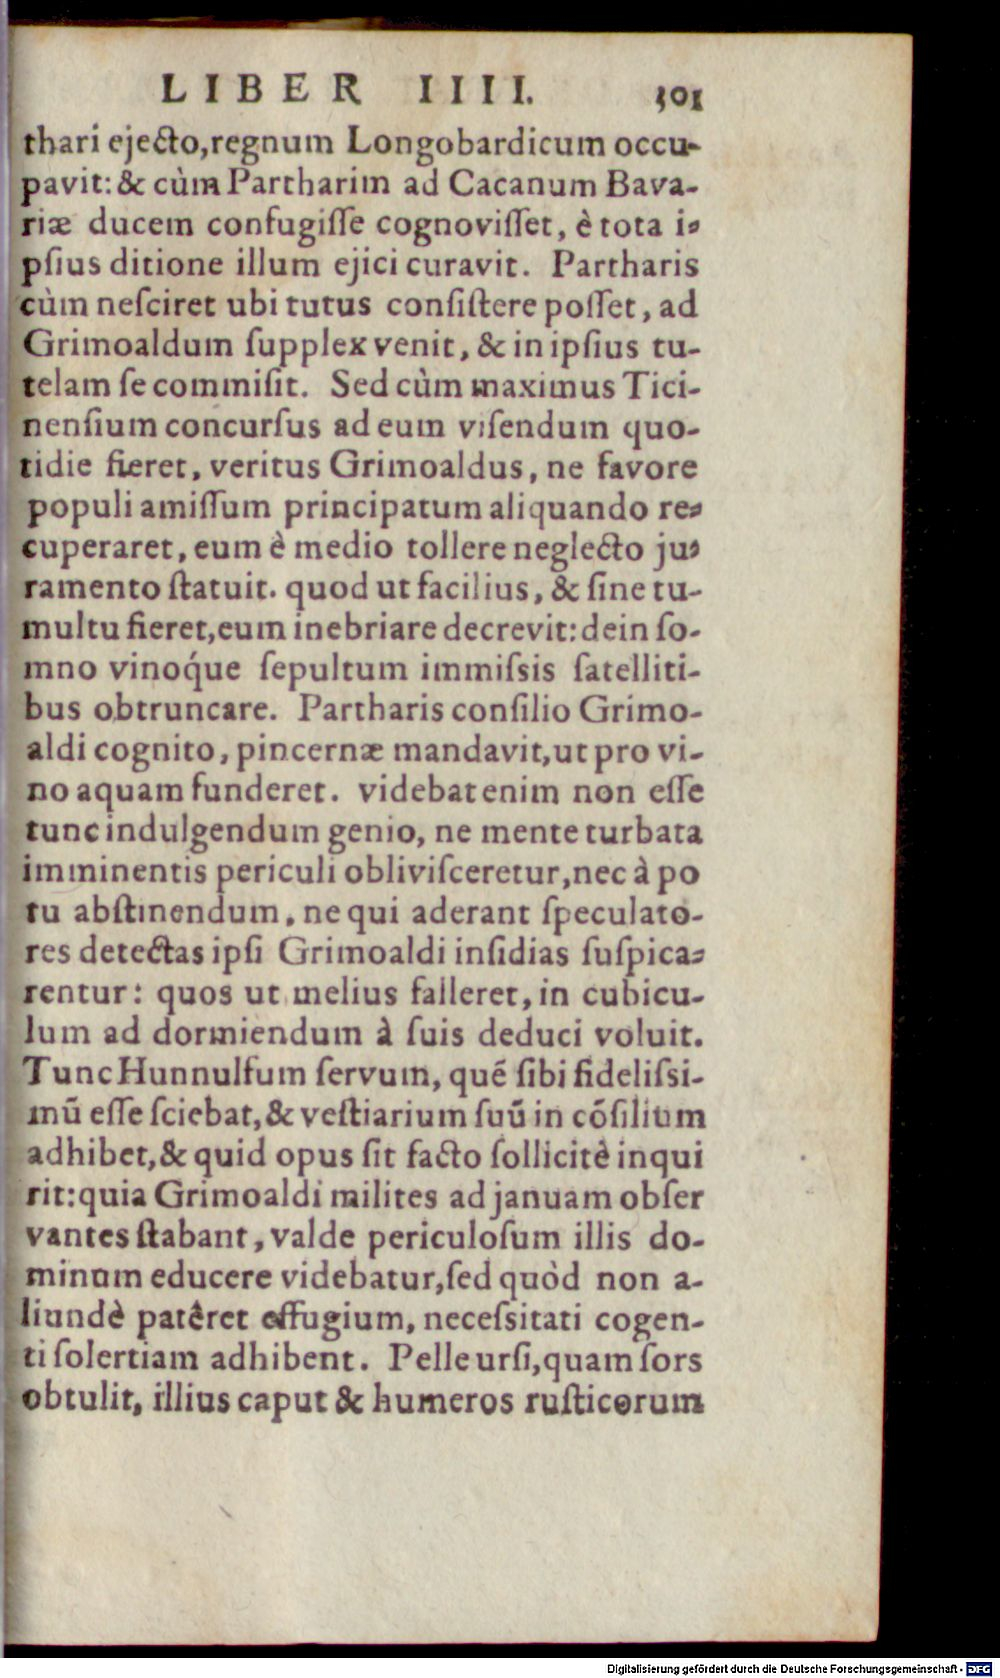 LIBER IIII. 301
thari ejecto, regnum Longobardicum occu-
pavit: & cùm Partharim ad Cacanum Bava-
riæ ducem confugiſſe cognoviſſet, è tota i-
pſius ditione illum ejici curavit. Partharis
cùm neſciret ubi tutus conſiſtere poſſet, ad
Grimoaldum ſupplex venit, & in ipſius tu-
telam ſe commiſit. Sed cùm maximus Tici-
nenſium concurſus ad eum viſendum quo-
tidie fieret, veritus Grimoaldus, ne favore
populi amiſſum principatum aliquando re-
cuperaret, eum è medio tollere neglecto ju-
ramento ſtatuit. quod ut facilius, & ſine tu-
multu fieret, eum inebriare decrevit: dein ſo-
mno vinoq́ue ſepultum immiſsis ſatelliti-
bus obtruncare. Partharis conſilio Grimo-
aldi cognito, pincernæ mandavit, ut pro vi-
no aquam funderet. videbat enim non eſſe
tunc indulgendum genio, ne mente turbata
imminentis periculi obliviſceretur, nec à po
tu abſtinendum, ne qui aderant ſpeculato-
res detectas ipſi Grimoaldi inſidias ſuſpica-
rentur: quos ut melius falleret, in cubicu-
lum ad dormiendum à ſuis deduci voluit.
Tunc Hunnulfum ſervum, quẽ ſibi fideliſsi-
mũ eſſe ſciebat, & veſtiarium ſuũ in cõſilium
adhibet, & quid opus ſit facto ſollicitè inqui
rit: quia Grimoaldi milites ad januam obſer
vantes ſtabant, valde periculoſum illis do-
minum educere videbatur, ſed quòd non a-
liundè patêret effugium, neceſsitati cogen-
ti ſolertiam adhibent. Pelle urſi, quam ſors
obtulit, illius caput & humeros ruſticorum
Digitalisierung gefördert durch die Deutsche Forschungsgemeinschaft - DFG